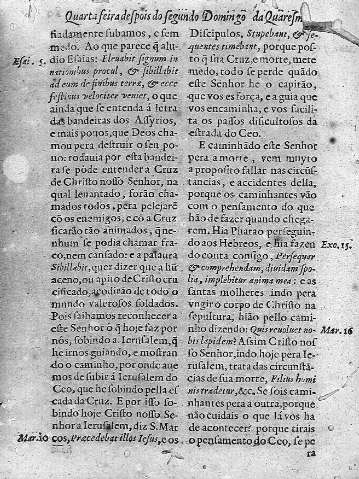 Quarta feira despois do segundo Domingo da Quaresm
fiadamente subamos, e sem
medo. Ao que parece q̃ alu-
dio Esaias: Eleuabit signum in
nationibus procul, & sibillabit
ad eum de finibus terræ, & ecce
festinus velociter veniet, o que
ainda que se entenda á letra
das bandeiras dos Assyrios,
e mais pouos, que Deos cha-
mou pera destruir o seu po-
uo: todauia por esta bandei-
ra se pode entender a Cruz
de Christo nosso Senhor, na
qual leuantado, forão cha-
mados todos, pera pelejarẽ
cõ os enemigos, e cõ a Cruz
ficarão tão animados, q̃ ne-
nhum se podia chamar fra-
co, nem cansado: e a palaura
Sibillabit, quer dizer que a hũ
aceno, ou apito de Cristo cru
cificado, acodirão de todo o
mundo valerosos soldados.
Pois saibamos reconhecer a
este Senhor o q̃ hoje faz por
nós, sobindo a Ierusalem, q̃
he irnos guiando, e mostran
do o caminho, por onde aue
mos de subir á Ierusalem do
Ceo, que he sobindo pella es
cada da Cruz. E por isso so-
bindo hoje Cristo nosso Se-
nhor a Ierusalem, diz S. Mar
cos, Præcedebat illos Iesus, e os
Esai. 5.
Mar. 10
Discipulos, Stupebant, & se-
quentes timebant, porque pos-
to q̃ sua Cruz e morte, mete
medo, todo se perde quãdo
este Senhor he o capitão,
que vos esforça, e a guia que
vos encaminha, e vos facili-
ta os passos dificultosos da
estrada do Ceo.
E caminhãdo este Senhor
pera a morte, vem muyto
a proposito fallar nas circũs-
tancias, e accidentes della,
porque os caminhantes vão
com o pensamento do que
hão de fazer quando chega-
rem. Hia Pharao perseguin-
do aos Hebreos, e hia fazen
do conta consigo, Persequar
& comprehendam, diuidam spo-
lia, implebitur anima mea: e as
santas molheres indo pera
vngir o corpo de Christo na
sepultura, hião pello cami-
nho dizendo: Quis reuoluet no-
bis lapidem? Assim Cristo nos
so Senhor, indo hoje pera Ie-
rusalem, trata das circunstã-
cias de sua morte, Filius homi
nis tradetur, &c. Se sois cami-
nhantes pera a outra, porque
não cuidais o que lá vos ha
de acontecer? porque tirais
o pensamento do Ceo, se pe
ra
Exo. 15.
Mar. 16